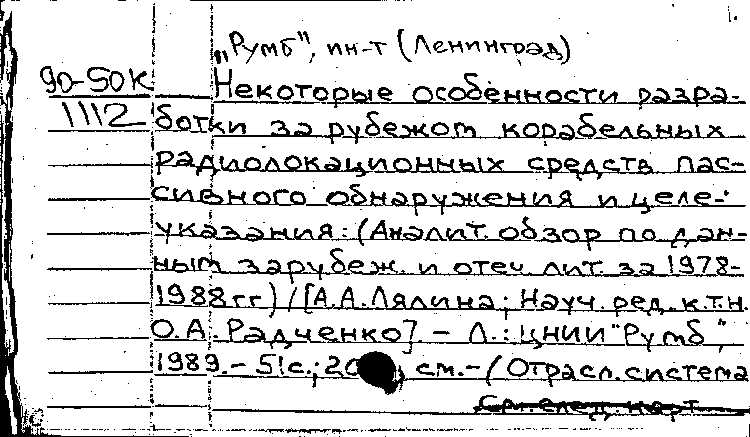 „Румб", ин-т (Ленинград)
90-50К Некоторые особенности разра-
1112 ботки за рубежом корабельных
радиолокационных средств пас-
сивного обнаружения и целе-
указания: (Аналит. обзор по дан-
ным зарубеж. и отеч. лит. за 1978-
1988 гг) / [А.А. Лялина; Науч. ред. к.т.н.
О.А. Радченко]. – Л.: ЦНИИ "Румб",
1989. – 51с.; 20 см. – (Отрасл. система
См. след. карт